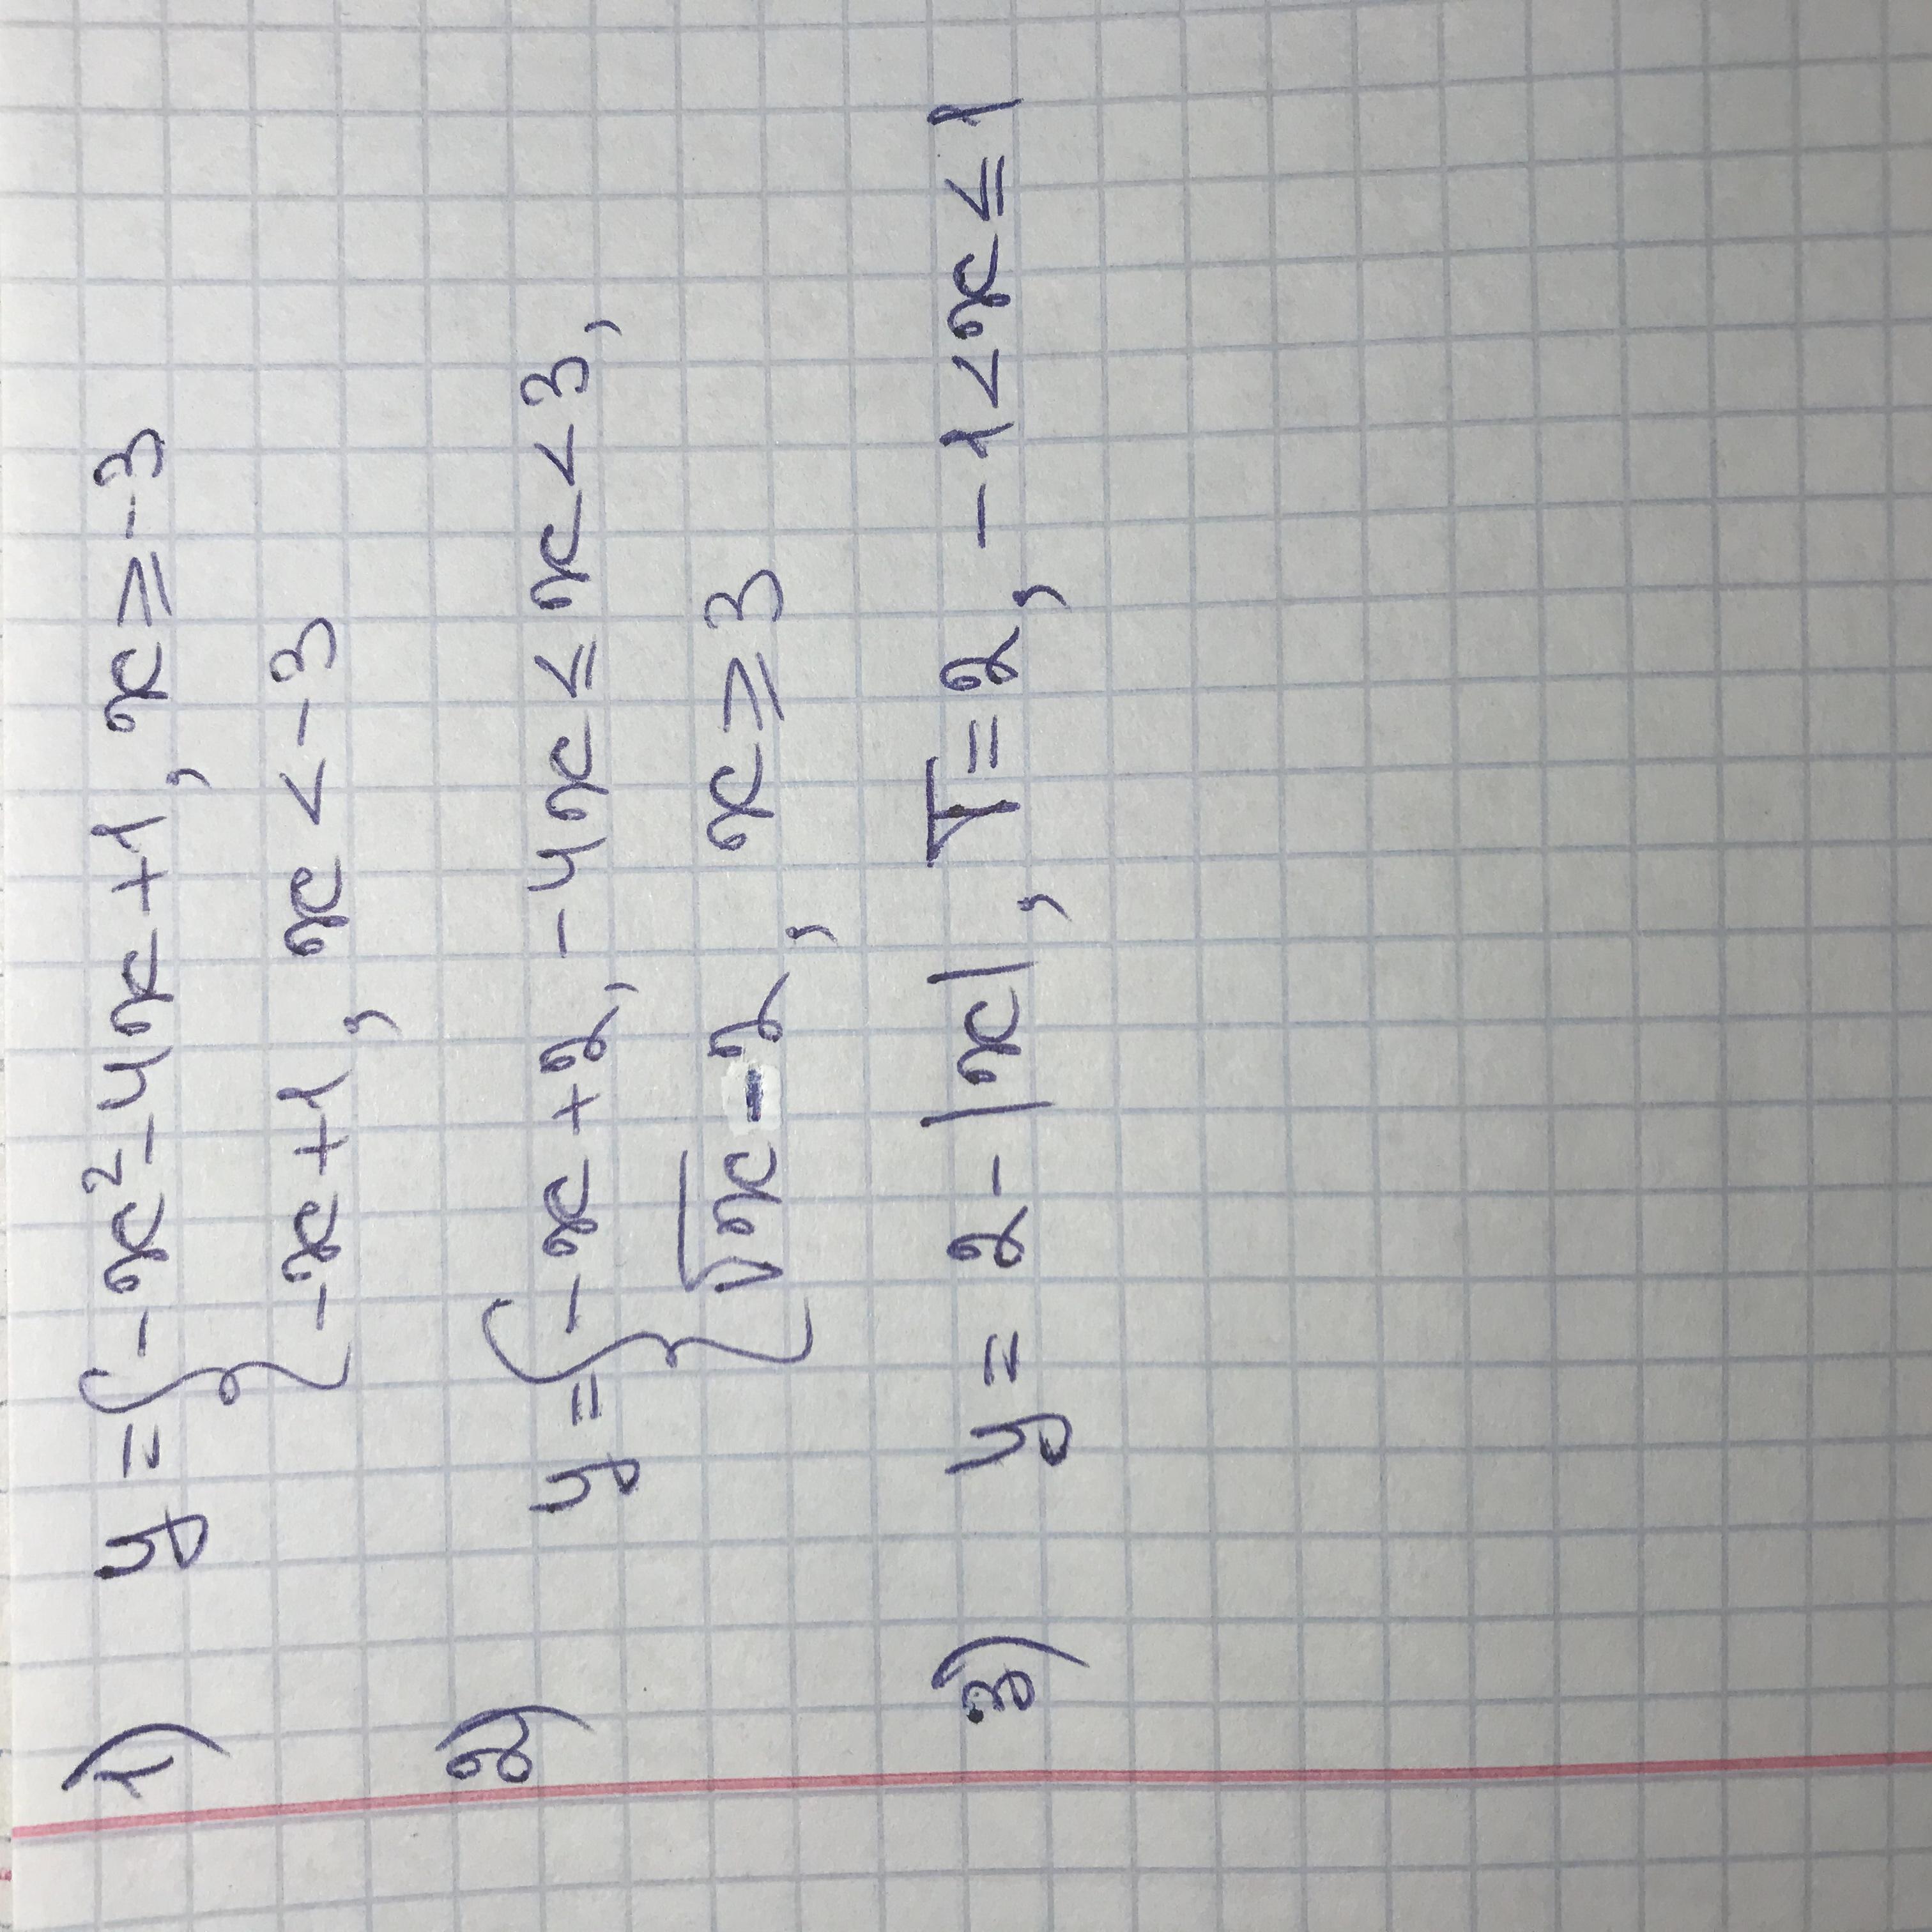 1) y = { -x² - 4x + 1, x ≥ -3
-x + 1, x < -3
2) y = { -x + 2, -4x ≤ x < 3,
√x - 2, x ≥ 3
3) y = 2 - |x|, T = 2, -1 < x ≤ 1